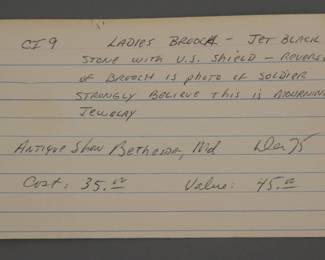 CI 9 LADIES BROOCH - JET BLACK
STONE WITH U.S. SHIELD - REVERSE
OF BROOCH IS PHOTO OF SOLDIER
STRONGLY BELIEVE THIS IS MOURNING
JEWELRY
Antique Show Bethesda, Md Dec 75
Cost: 35.00 Value: 45.00